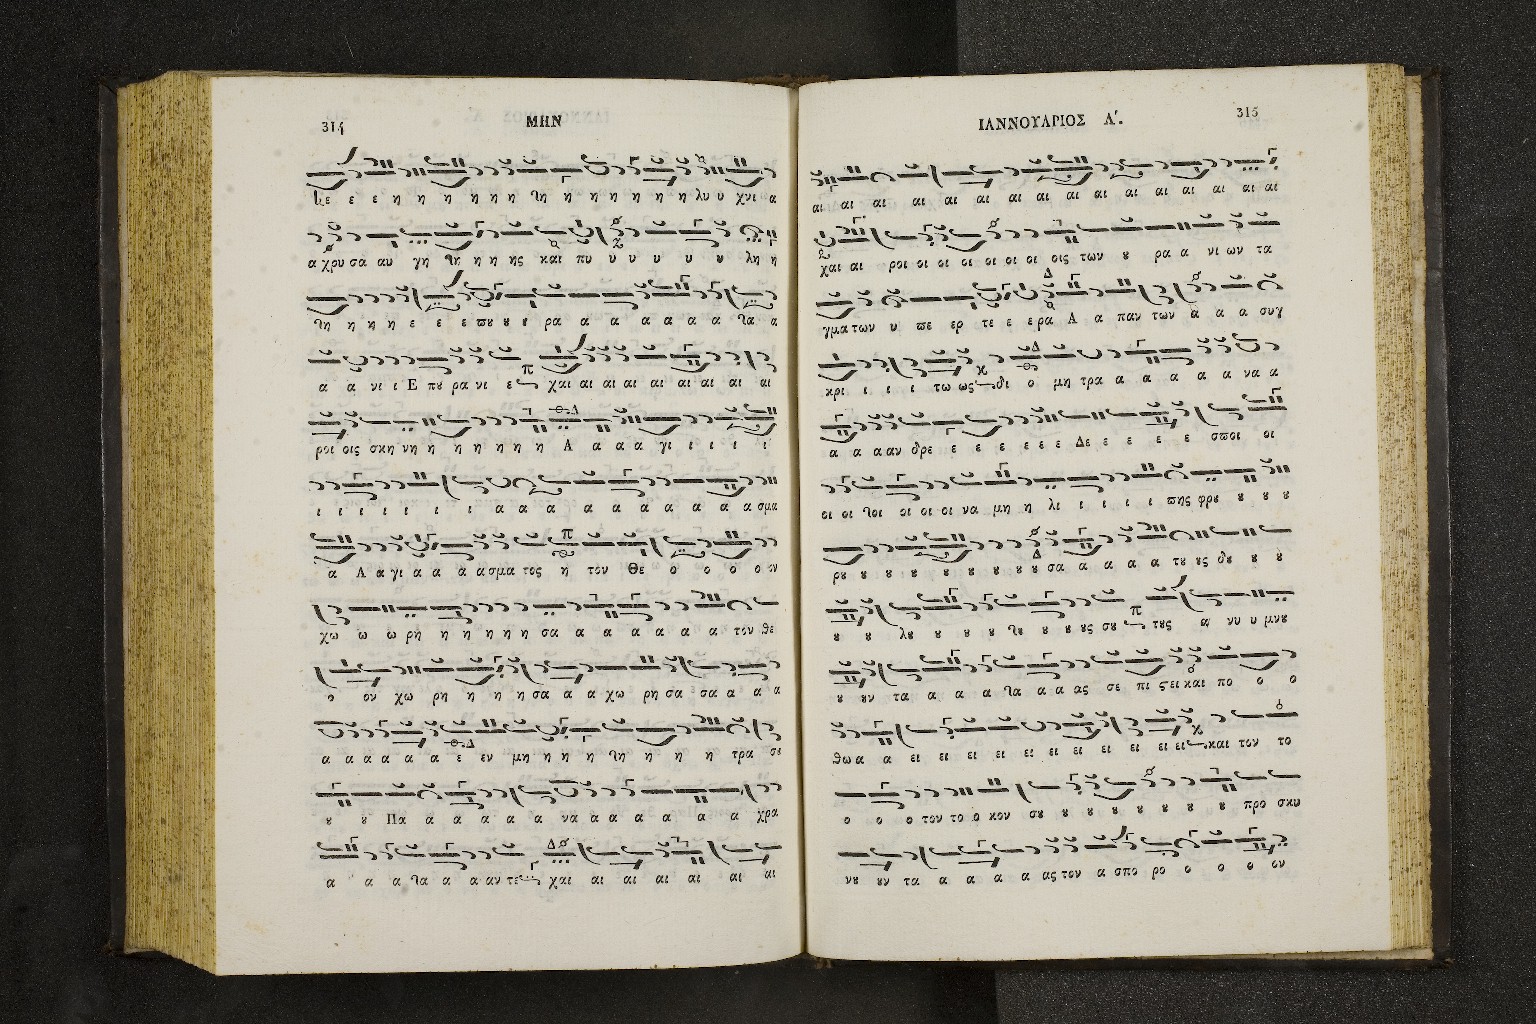 314
ΜΗΝ
ε ε η η η η η η τη η η η η η η λυ υ χνι α
α χρυ σα αυ γη τη η η ης και πυ υ υ υ υ υ λη η
τη η η η ε ε ε που ȣ ȣ ρα α α α α α α τα α
α α νι ι Ε πȣ ρα νι ε χαι αι αι αι αι αι αι αι αι
ροι οις σκη νη η η η η η η Α α α α γι ι ι ι ι
ι ι ι ι ι ι ι α α α α α α α α α α σμα
α Α α γι α α α α σμα τος η τον Θε ο ο ο ο ον
χω ω ω ρη η η η η η σα α α α α α α τον θε
ο ον χω ρη η η η σα α α χω ρη σα σα α α α
α α α α α α ε εν μη η η η τη η η η τρα σȣ
ȣ ȣ Πα α α α α α να α α α α α α χρα
α α α τα α α αν τε χαι αι αι αι αι αι
ΙΑΝΝΟΥΑΡΙΟΣ Α΄.
315
αι αι αι αι αι αι αι αι αι αι αι αι αι αι αι
χαι αι ροι οι οι οι οι οι οι οις των ȣ ρα α νι ων τα
γμα των υ πε ερ τε ε ε ρα Α α παν των α α α συγ
κρι ι ι ι τω ως δι ο μη τρα α α α α α να α
α α α αν δρε ε ε ε ε ε ε Δε ε ε ε ε σποι οι
οι οι τοι οι οι οι να μη η λι ι ι ι ι πης φρȣ ȣ ȣ ȣ
ρȣ ȣ ȣ ȣ ȣ ȣ ȣ ȣ ȣ σα α α α α τȣ ȣς δȣ ȣ ȣ
ȣ ȣ λȣ ȣ ȣ ȣ τȣ ȣ ȣ ȣς σȣ τȣς α νυ υ μνȣ
ȣ ȣν τα α α α τα α α ας σε πι ςει και πο ο ο
θω α α ει ει ει ει ει ει ει ει ει ει και τον το
ο ο ο τον το ο κον σȣ ȣ ȣ ȣ ȣ ȣ ȣ ȣ προ σκυ
νȣ ȣν τα α α α α ας τον α σπο ρο ο ο ο ον